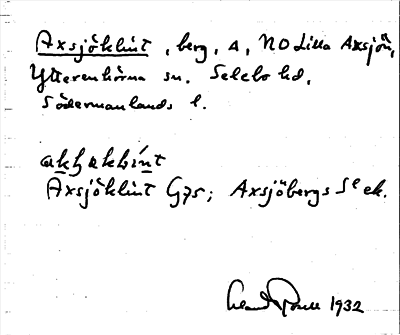 Axsjöklint, berg, A, NO Lilla Axsjön,
Ytterenhörna sn. Selebo hd.
Södermanlands l.
Axsjöklint G75; Axsjöbergs Sl ek.
1932